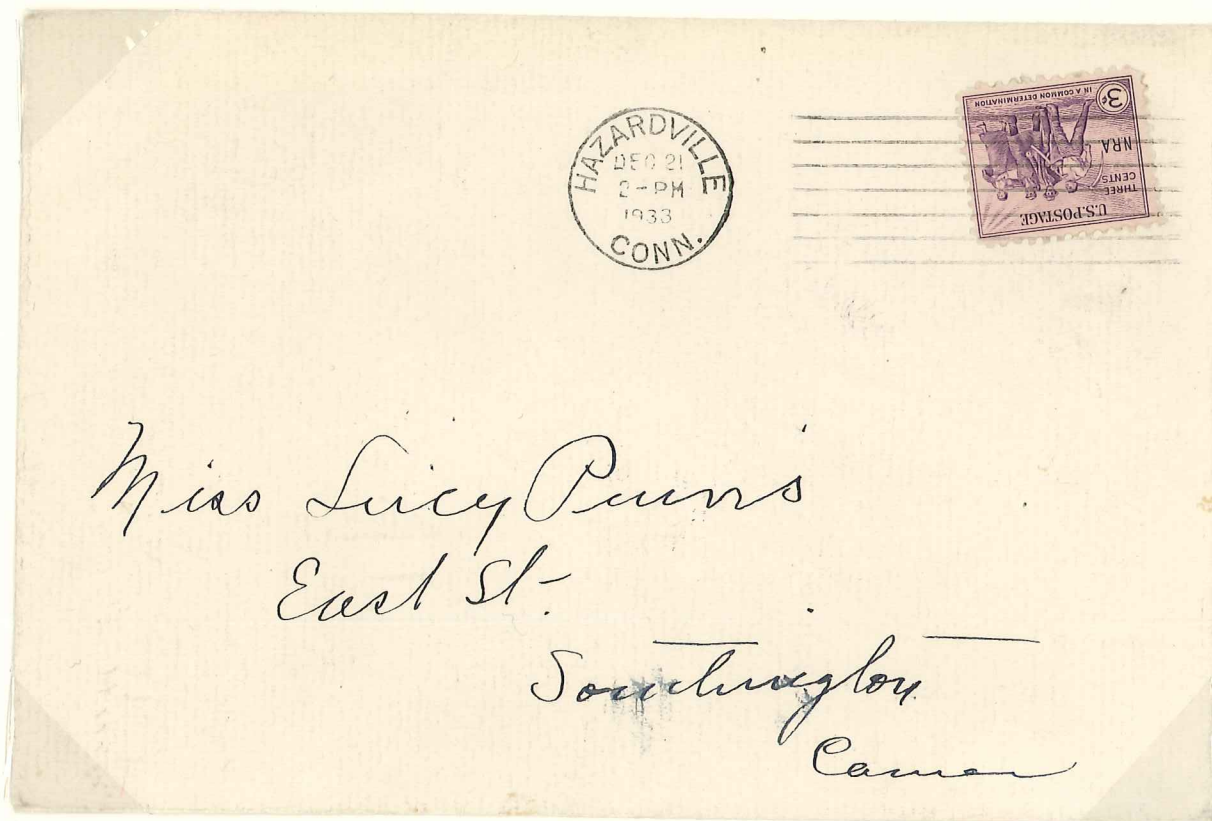 HAZARDVILLE
DEC 21
2-PM
1933
CONN.
U.S. POSTAGE
THREE
CENTS
NRA
3¢
IN A COMMON DETERMINATION
Miss Lucy Purvis
East St.
Southington
Conn